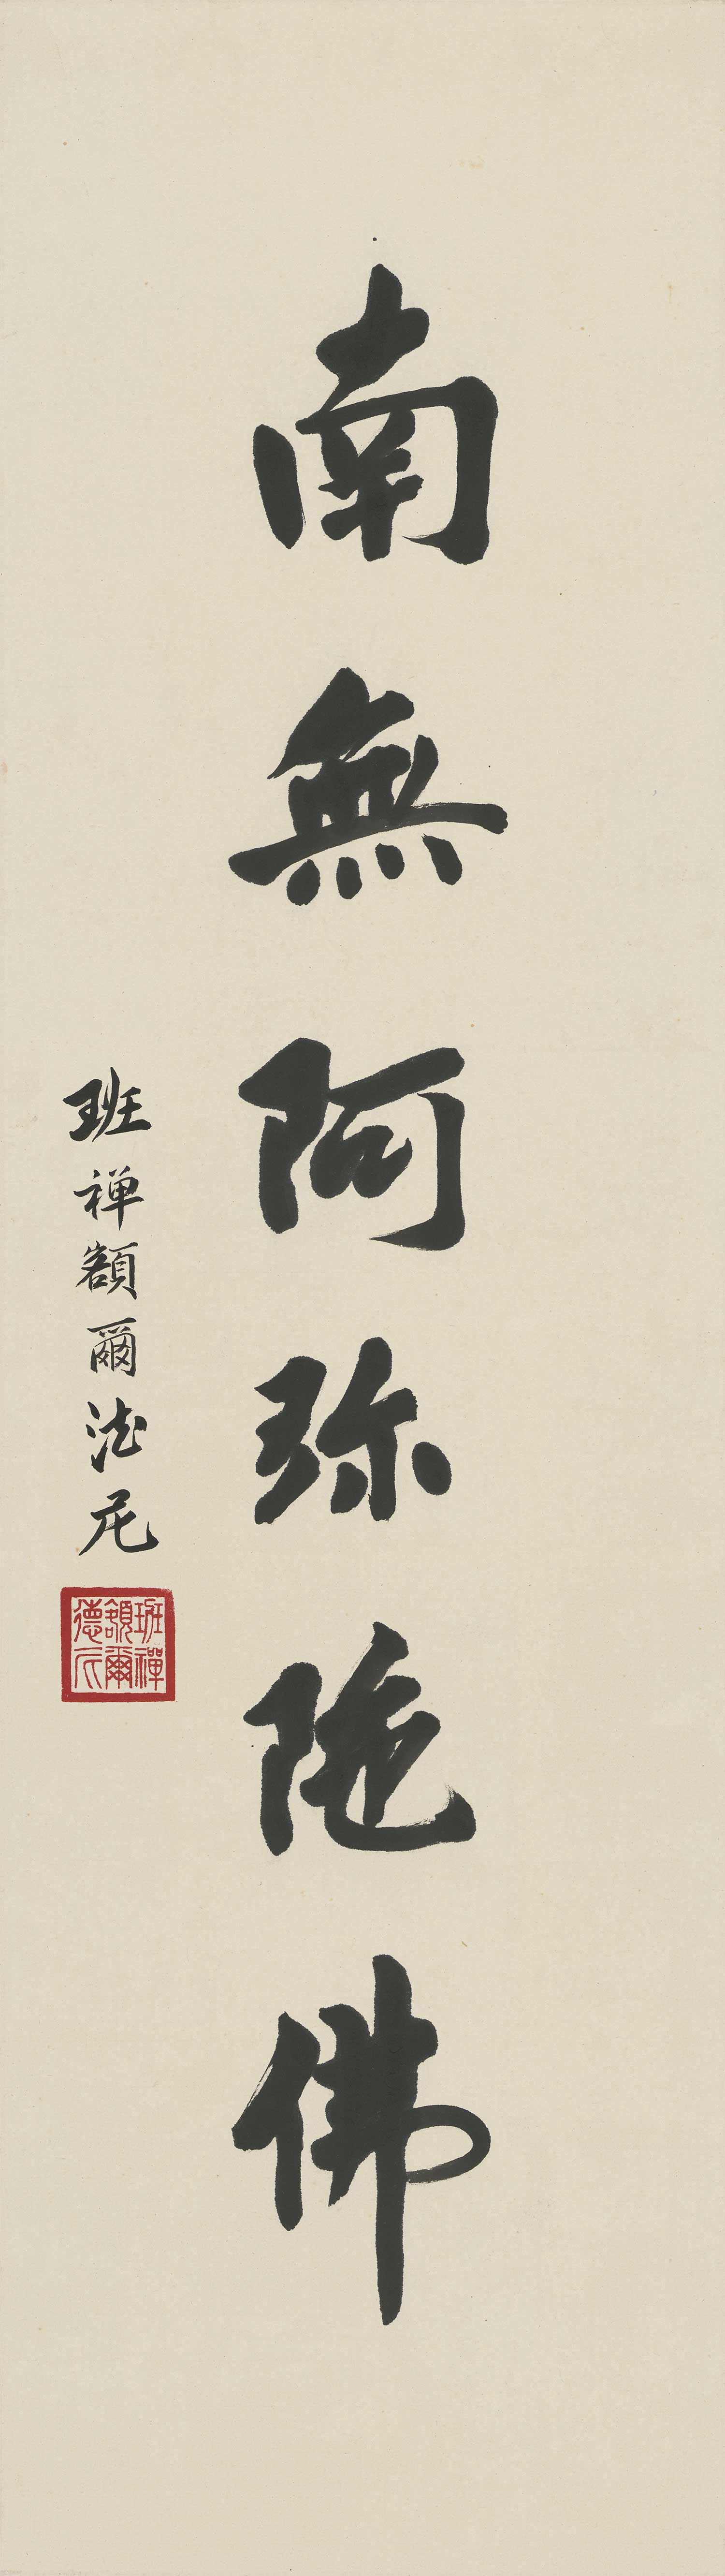 南無阿弥陀佛
班禅額爾法尼
班禪
額爾
德尼